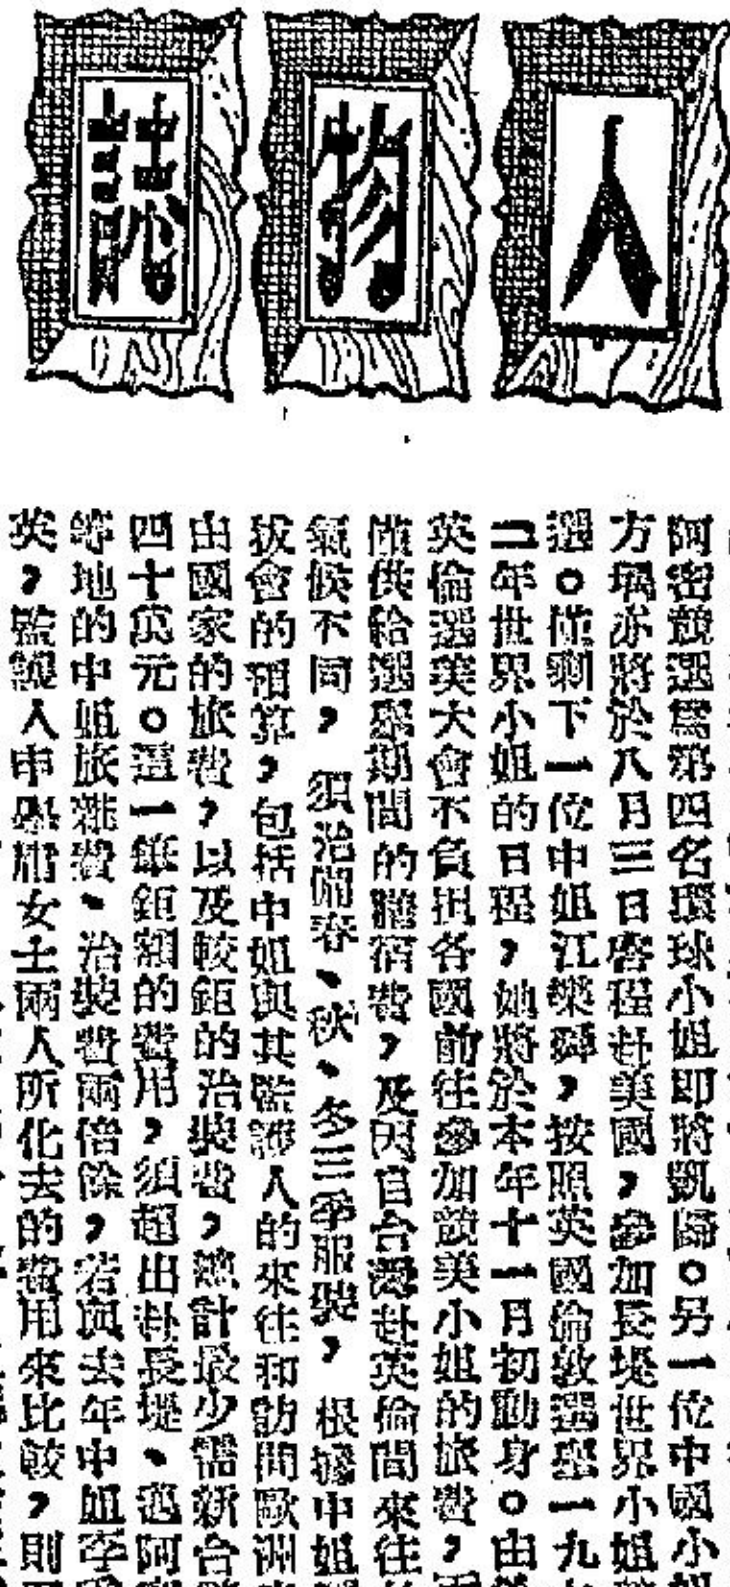 人物誌
阿密競選為第四名環球小姐即將凱歸。另一位中國小
方瑀亦將於八月三日啓程赴美國，參加長堤世界小姐
選。僅剩下一位中姐江樂舜，按照英國倫敦選舉一九
二年世界小姐的日程，她將於本年十一月初動身。由
英倫選美大會不負担各國前往參加競美小姐的旅費，
僅供給選舉期間的膳宿費，及因自台灣赴英倫間來往
氣候不同，須治備春、秋、冬三季服裝，根據中姐
拔會的預算，包括中姐與其監護人的來往和訪問歐洲
由國家的旅費，以及較鉅的治裝費，總計最少需新台
四十萬元。這一筆鉅額的費用，須超出赴長堤、邁阿
等地的中姐旅雜費、治裝費兩倍餘，若與去年中姐李
英，監護人申學庸女士兩人所化去的費用來比較，則